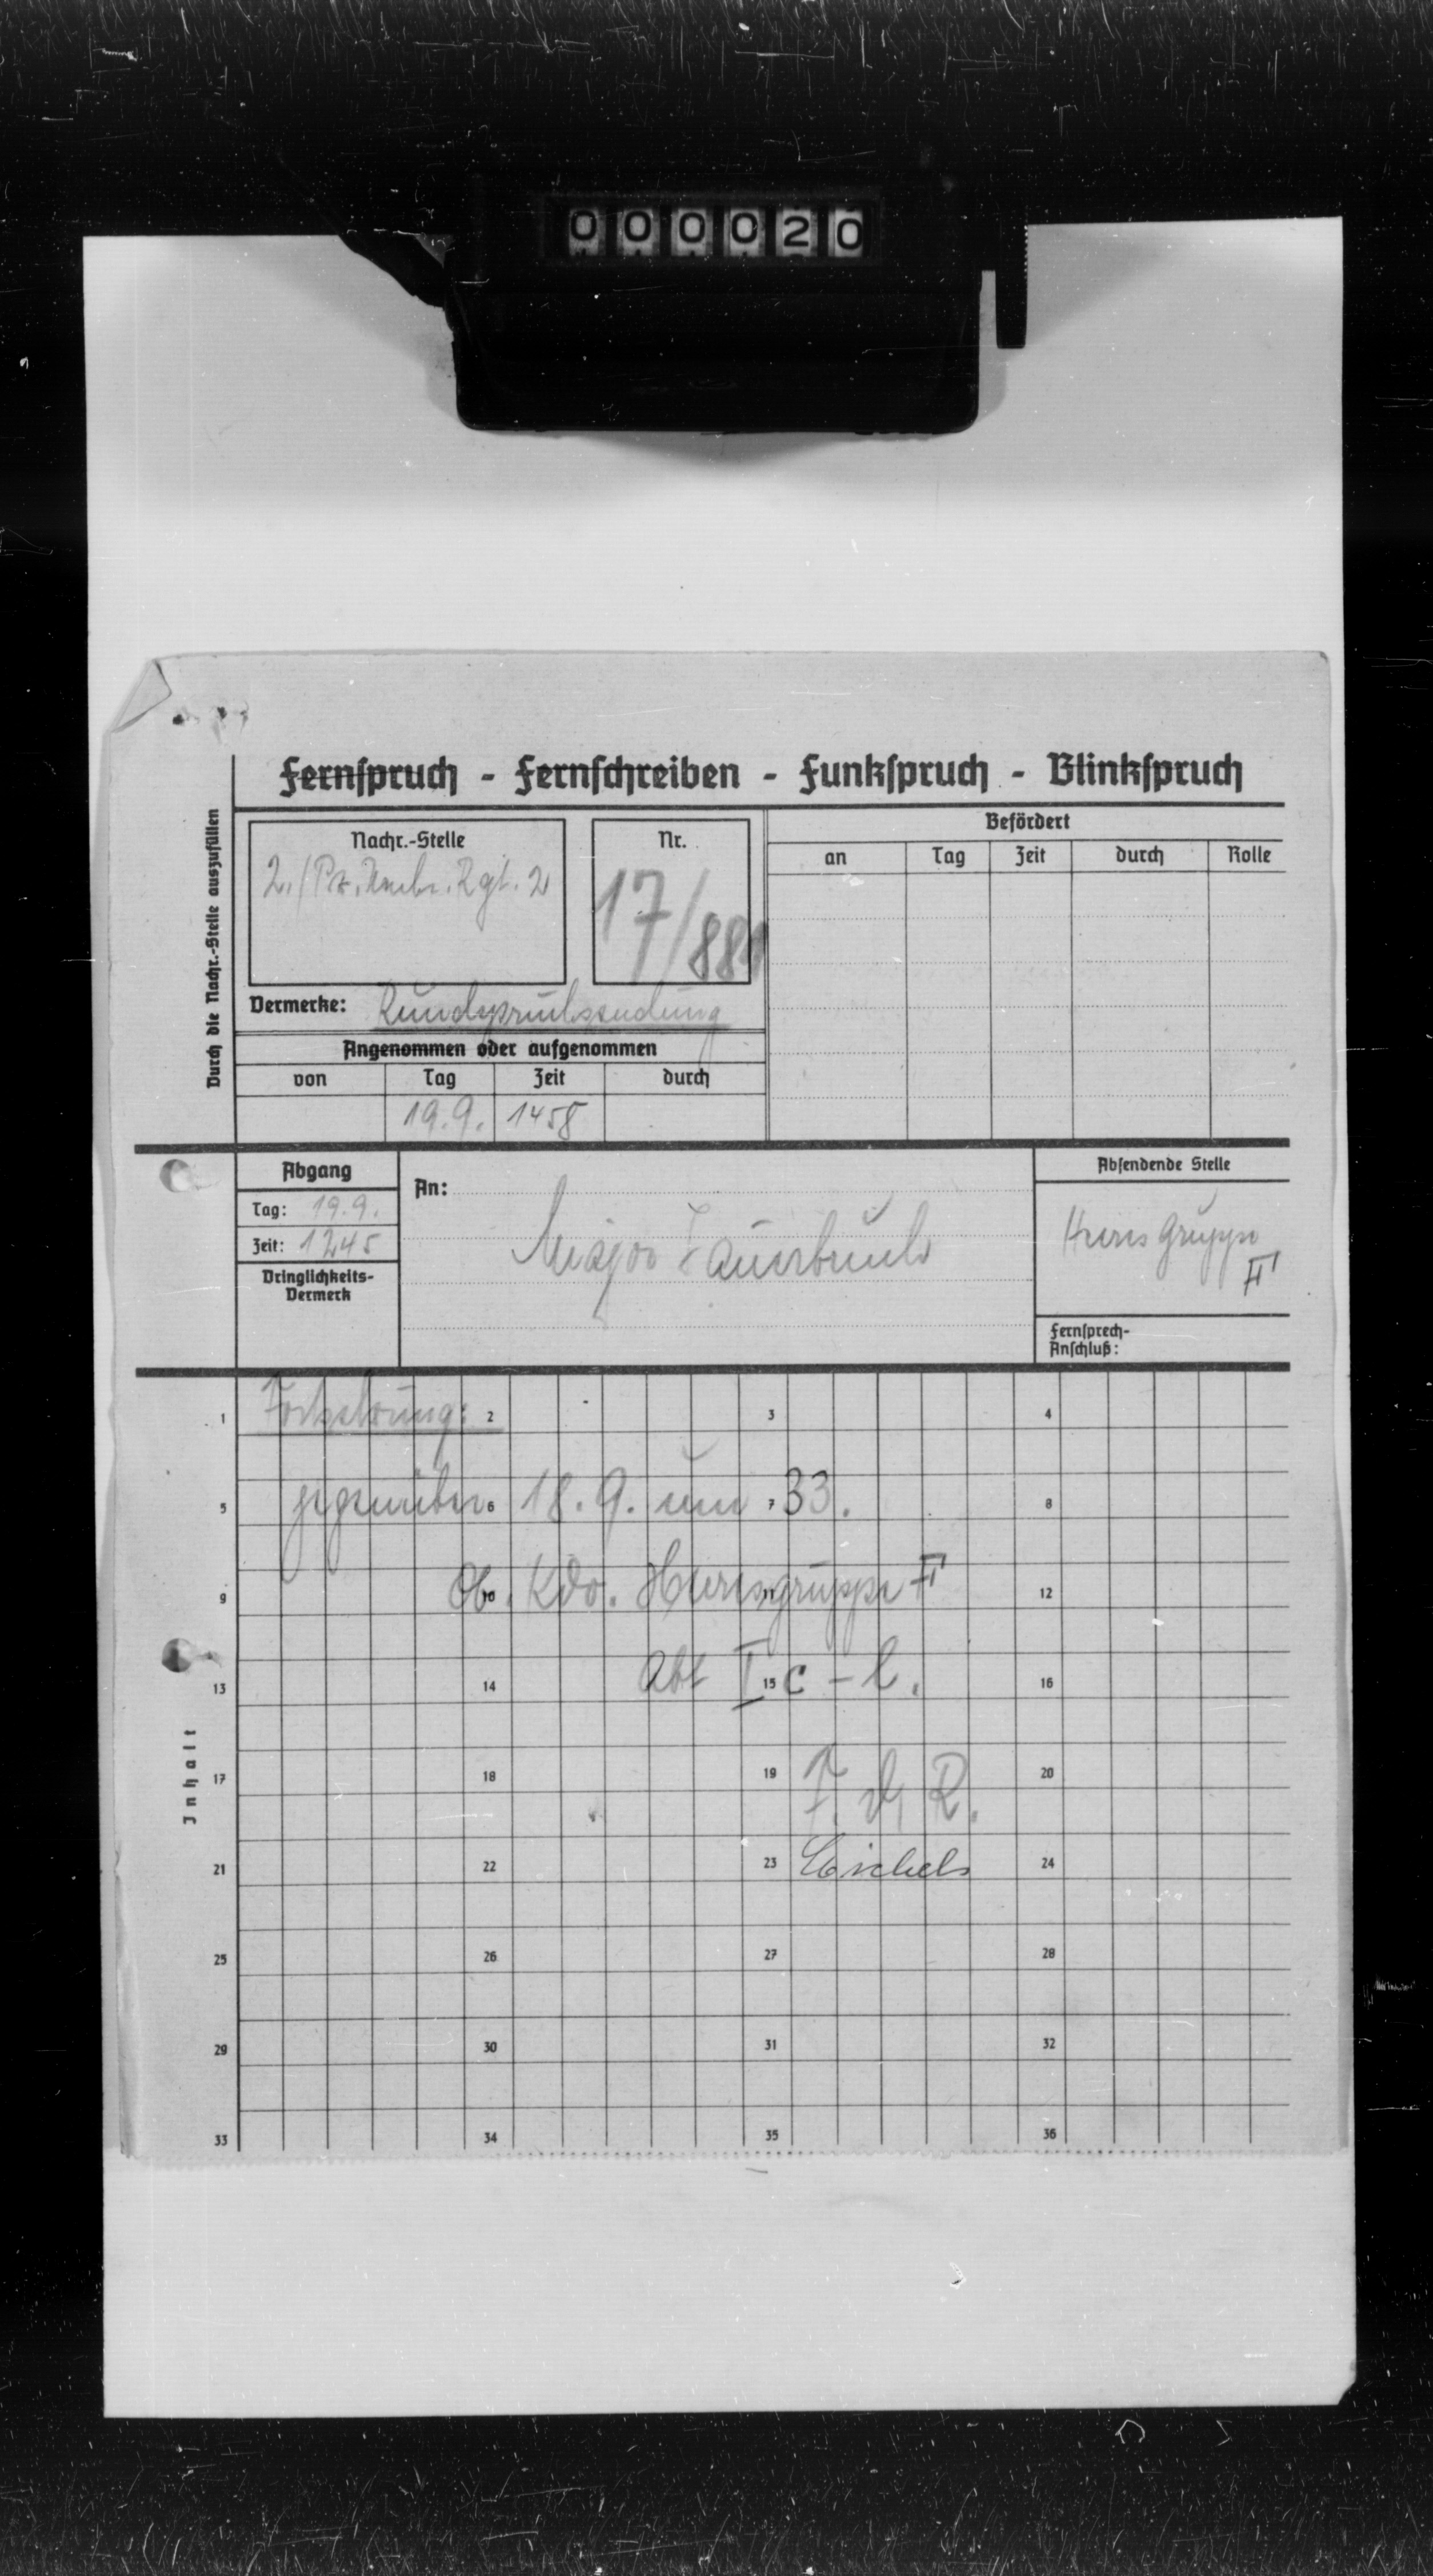 000020
Fernspruch - Fernschreiben - Funkspruch - Blinkspruch
Durch die Nachr.-Stelle auszufüllen
Nachr.-Stelle
2./Pz. Nachr. Rgt. 2
Nr.
17/881
Befördert
an Tag Zeit durch Rolle
Vermerke: Rundspruchsendung
Angenommen oder aufgenommen
von Tag Zeit durch
19.9. 1458
Abgang
Tag: 19.9.
Zeit: 1245
Dringlichkeits-
Vermerk
An:
Major
Absendende Stelle
Heeresgruppe
F
Fernsprech-
Anschluß:
Inhalt
1 2 3 4
gegenüber 18.9. um 33.
5 6 7 8
Ob. Kdo. Heeresgruppe F
9 10 11 12
Abt Ic - l.
13 14 15 16
F. d. R.
17 18 19 20
21 22 23 24
25 26 27 28
29 30 31 32
33 34 35 36